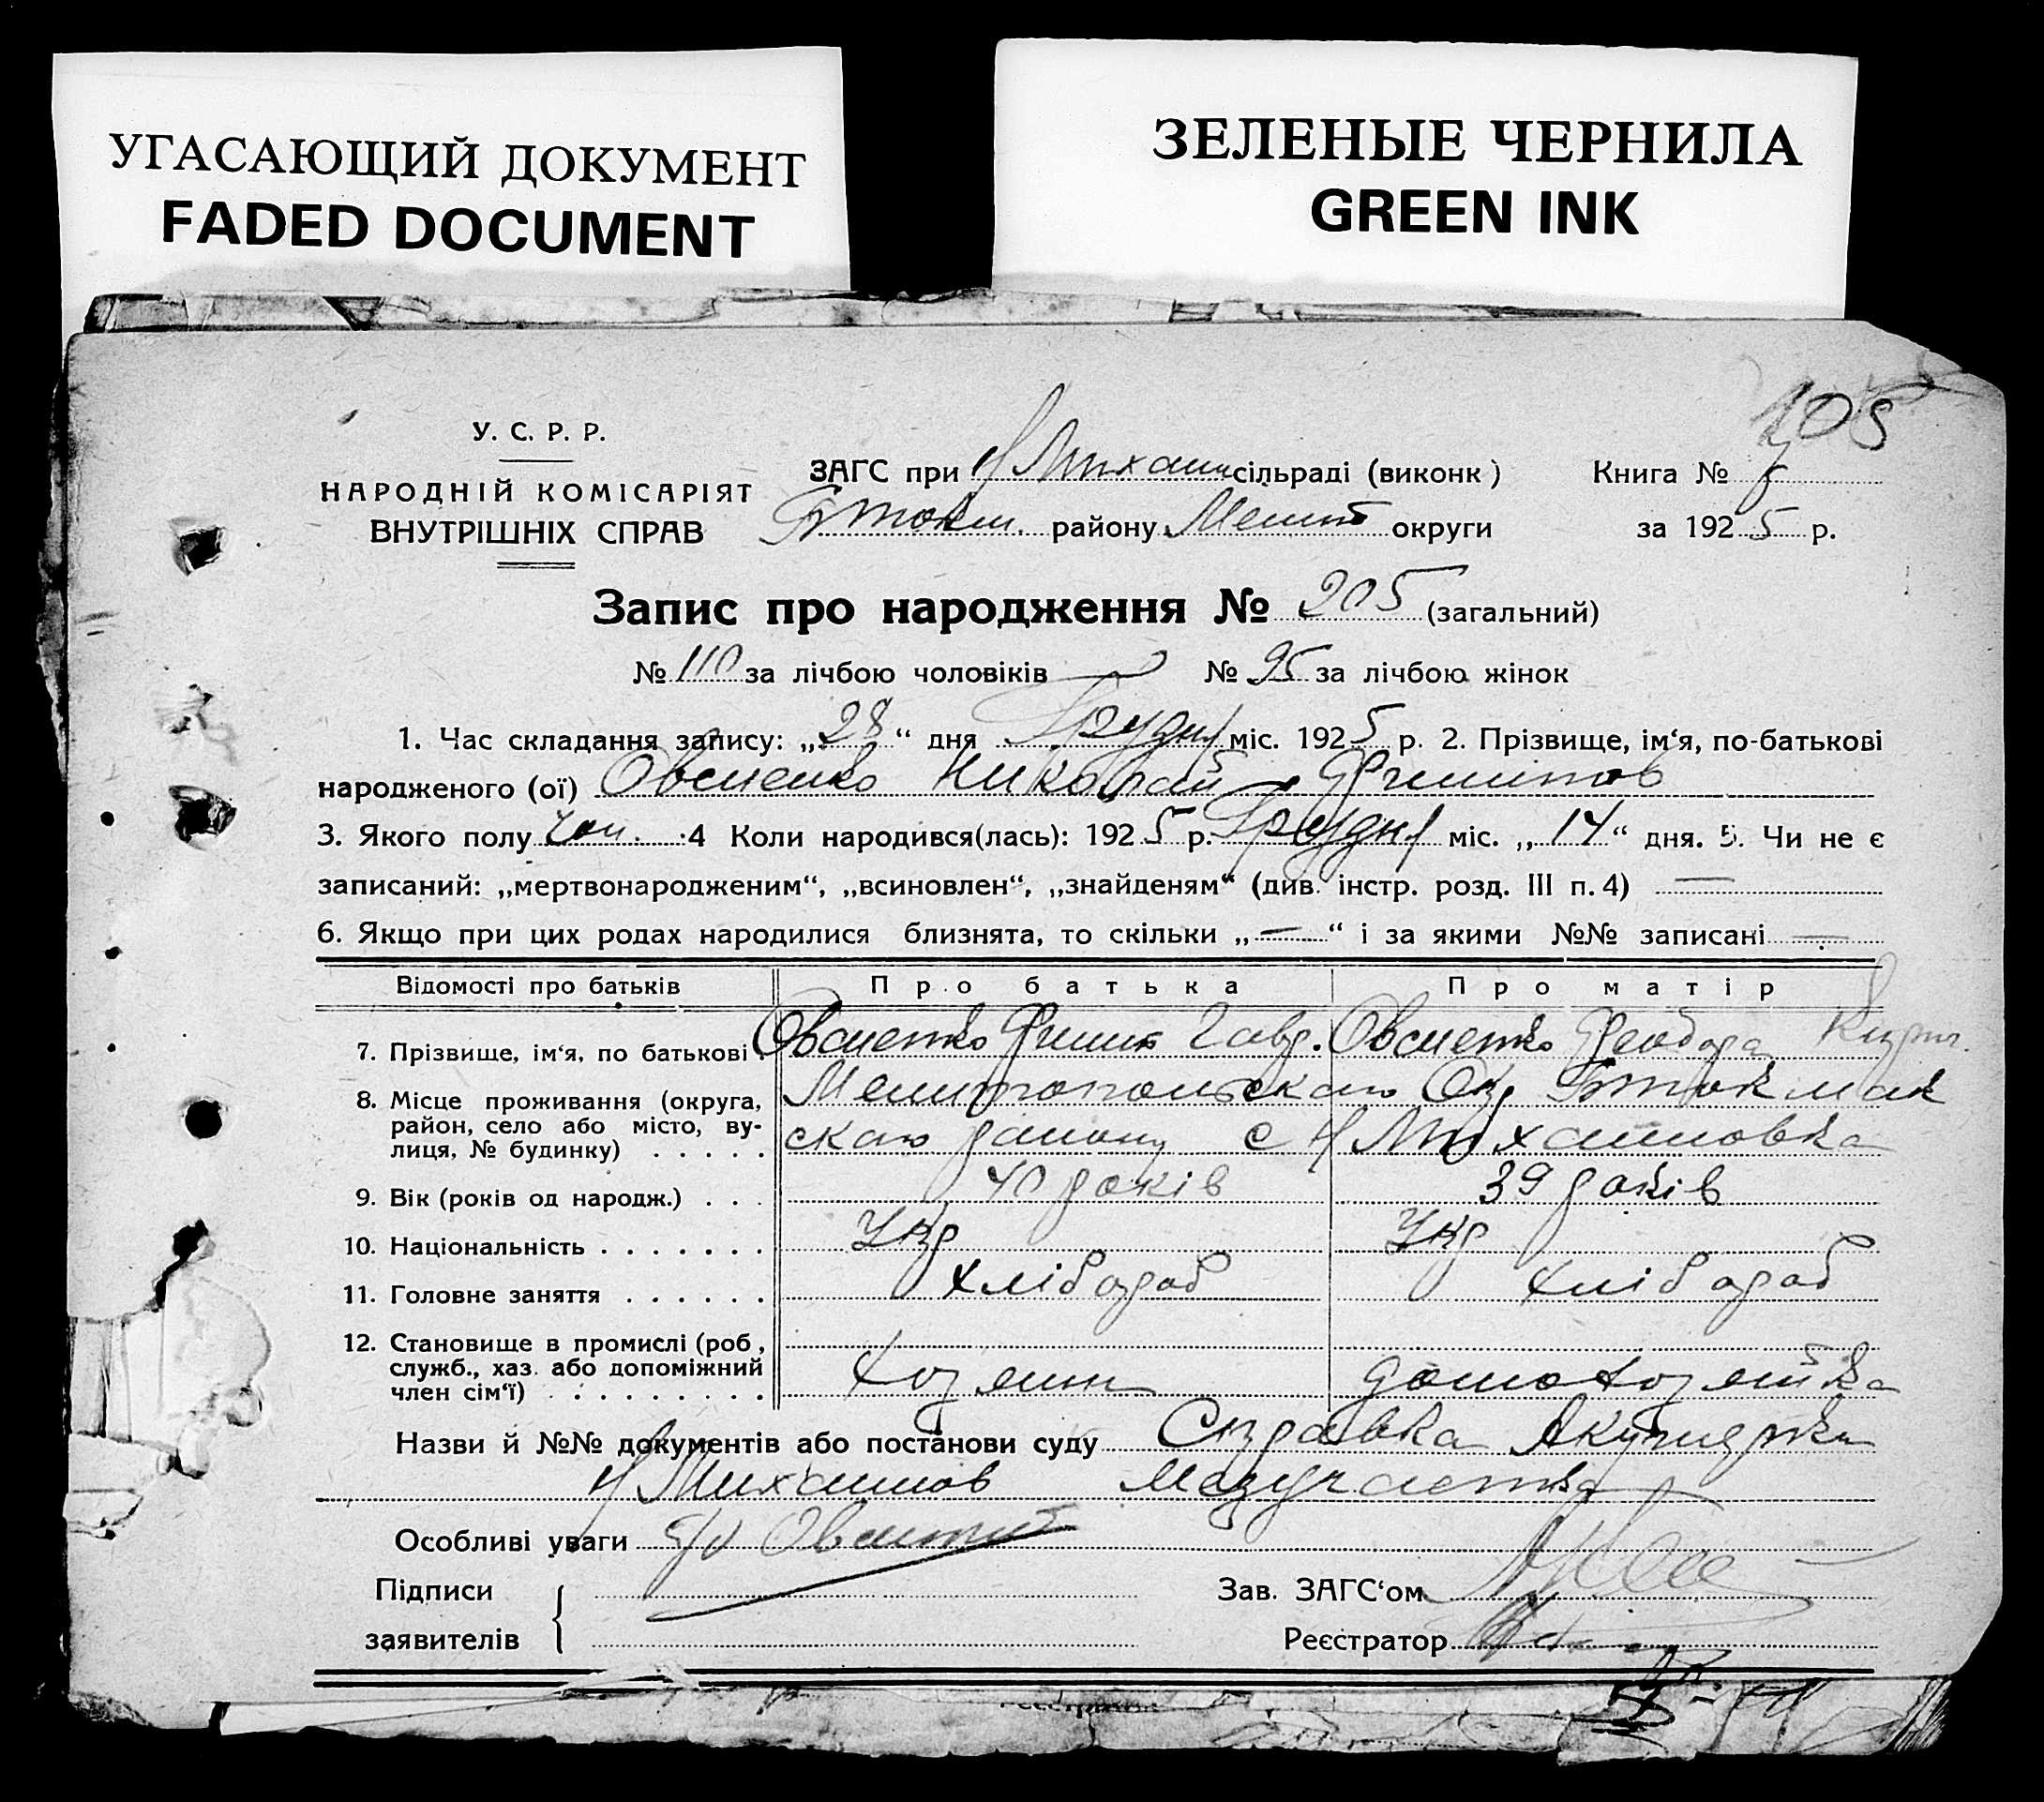 УГАСАЮЩИЙ ДОКУМЕНТ
FADED DOCUMENT
ЗЕЛЕНЫЕ ЧЕРНИЛА
GREEN INK
205
У. С. Р. Р.
НАРОДНІЙ КОМІСАРІЯТ
ВНУТРІШНІХ СПРАВ
ЗАГС при Н Михайл сільраді (виконк)
Бтокм. району Меліт округи
Книга №
за 1925 р.
Запис про народження № 205 (загальний)
№ 110 за лічбою чоловіків № 95 за лічбою жінок
1. Час складання запису: „28“ дня Грудня міс. 1925 р. 2. Прізвище, ім‘я, по-батькові
народженого (ої) Овсиенко Николай Филипов
3. Якого полу чол. 4 Коли народився(лась): 1925 р. Грудня міс. „14“ дня. 5. Чи не є
записаний: „мертвонародженим“, „всиновлен“, „знайденям“ (див. інстр. розд. III п. 4) —
6. Якщо при цих родах народилися близнята, то скільки „—“ і за якими №№ записані —
Відомості про батьків Про батька Про матір
7. Прізвище, ім‘я, по батькові Овсиенко Филип Гавр. Овсиенко Феодора Кирил.
8. Місце проживання (округа, район, село або місто, вулиця, № будинку) Мелитопольскаго Окр Бтокмак
скаго району с Н Михайловка
9. Вік (років од народж.) 40 років 39 років
10. Національність Укр Укр
11. Головне заняття хлібороб хлібороб
12. Становище в промислі (роб,
служб., хаз. або допоміжний
член сім‘ї) хозяин домохозяйка
Назви й №№ документів або постанови суду Справка Акушерки
Н Михайлов Медучастка
Особливі уваги
Підписи
заявителів
Зав. ЗАГС‘ом
Реєстратор